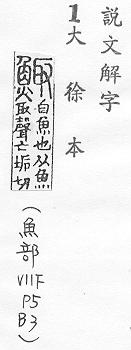 說文解字
1大徐本
鯫白魚也从魚
取聲士垢切
(魚部
VII下
P5
B3)